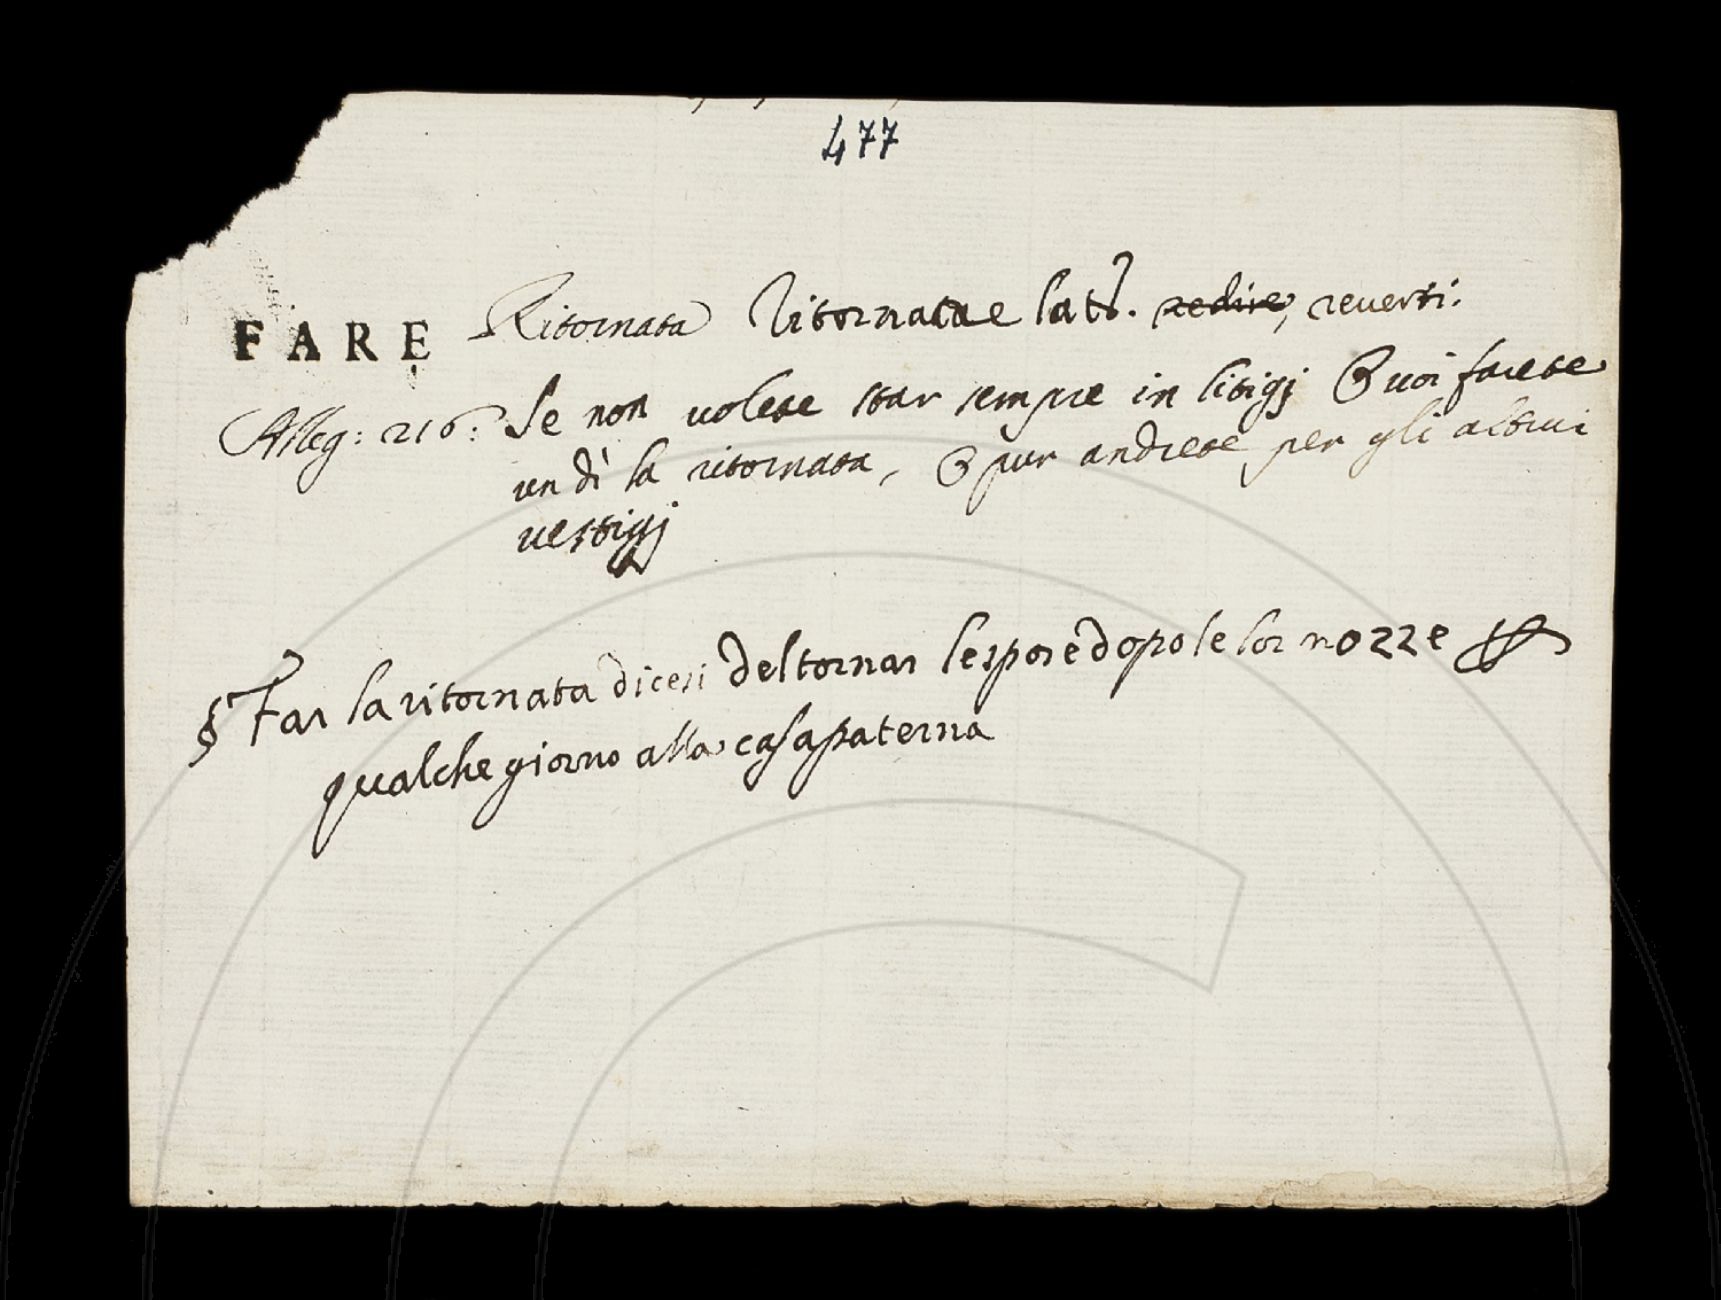 477
FARE Ritornata Ritornare lat. redire, reverti.
Alleg: 216: Se non volete star sempre in litigj E voi farete
un dì la ritornata, E pur andrete per gli altrui
vestigj
§ Far la ritornata dicesi del tornar le spose dopo le lor nozze
qualche giorno alla casa paterna